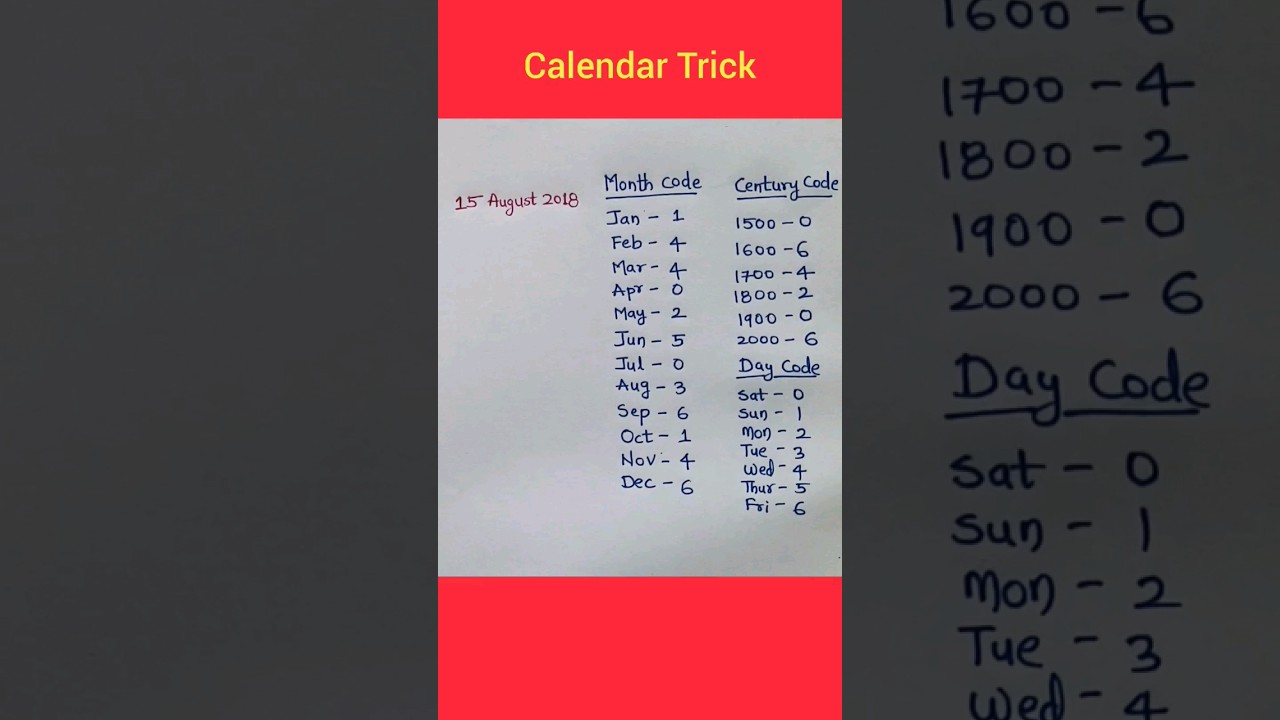 Calendar Trick
15 August 2018
Month Code
Jan - 1
Feb - 4
Mar - 4
Apr - 0
May - 2
Jun - 5
Jul - 0
Aug - 3
Sep - 6
Oct - 1
Nov - 4
Dec - 6
Century Code
1500 - 0
1600 - 6
1700 - 4
1800 - 2
1900 - 0
2000 - 6
Day Code
Sat - 0
Sun - 1
Mon - 2
Tue - 3
Wed - 4
Thur - 5
Fri - 6
1600 - 6
1700 - 4
1800 - 2
1900 - 0
2000 - 6
Day Code
Sat - 0
Sun - 1
Mon - 2
Tue - 3
Wed - 4